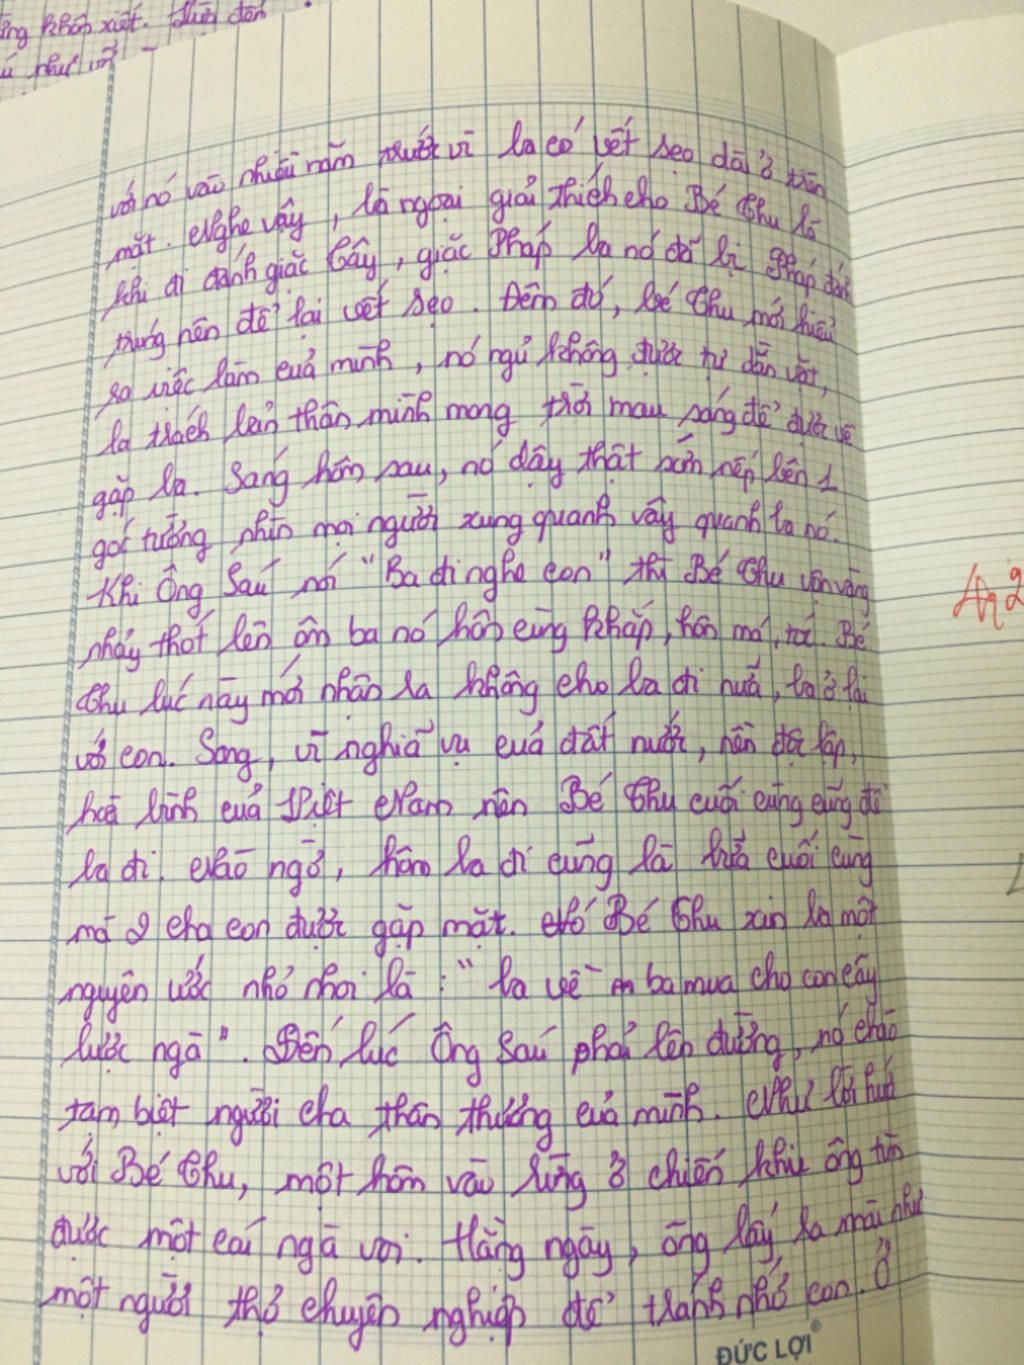 ng khôn xiết. Hứa đến
như về
với nó vào nhiều năm trước vì ba có vết sẹo dài ở trên
mặt. Nghe vậy, bà ngoại giải thích cho Bé Thu là
khi đi đánh giặc Tây, giặc Pháp ba nó đã bị Pháp đánh
trúng nên để lại vết sẹo. Đêm đó, bé Thu mới hiểu
ra việc làm của mình, nó ngủ không được tự dằn vặt,
la trách bản thân mình mong trời mau sáng để được về
gặp ba. Sáng hôm sau, nó dậy thật sớm nép bên 1
góc tường nhìn mọi người xung quanh vây quanh ba nó.
Khi Ông Sáu nói "Ba đi nghe con" thì Bé Thu vội vàng
nhảy thót lên ôm ba nó hôn cùng khắp, hôn má, tóc. Bé
Thu lúc này mới nhận ra không cho ba đi nữa, ba ở lại
với con. Song, vì nghĩa vụ của đất nước, nền độc lập,
hoà bình của Việt Nam nên Bé Thu cuối cùng cũng để
ba đi. Nào ngờ, hôm ba đi cũng là bữa cuối cùng
mà 2 cha con được gặp mặt. Bé Thu xin ba một
nguyện ước nhỏ nhoi là: "ba về ba mua cho con cây
lược ngà". Đến lúc Ông Sáu phải lên đường, nó chào
tạm biệt người cha thân thương của mình. Như lời hứa
với Bé Thu, một hôm vào rừng ở chiến khu ông tìm
được một cái ngà voi. Hằng ngày, ông lấy ra mài như
một người thợ chuyên nghiệp để tránh nhớ con. Ở
ĐỨC LỢI